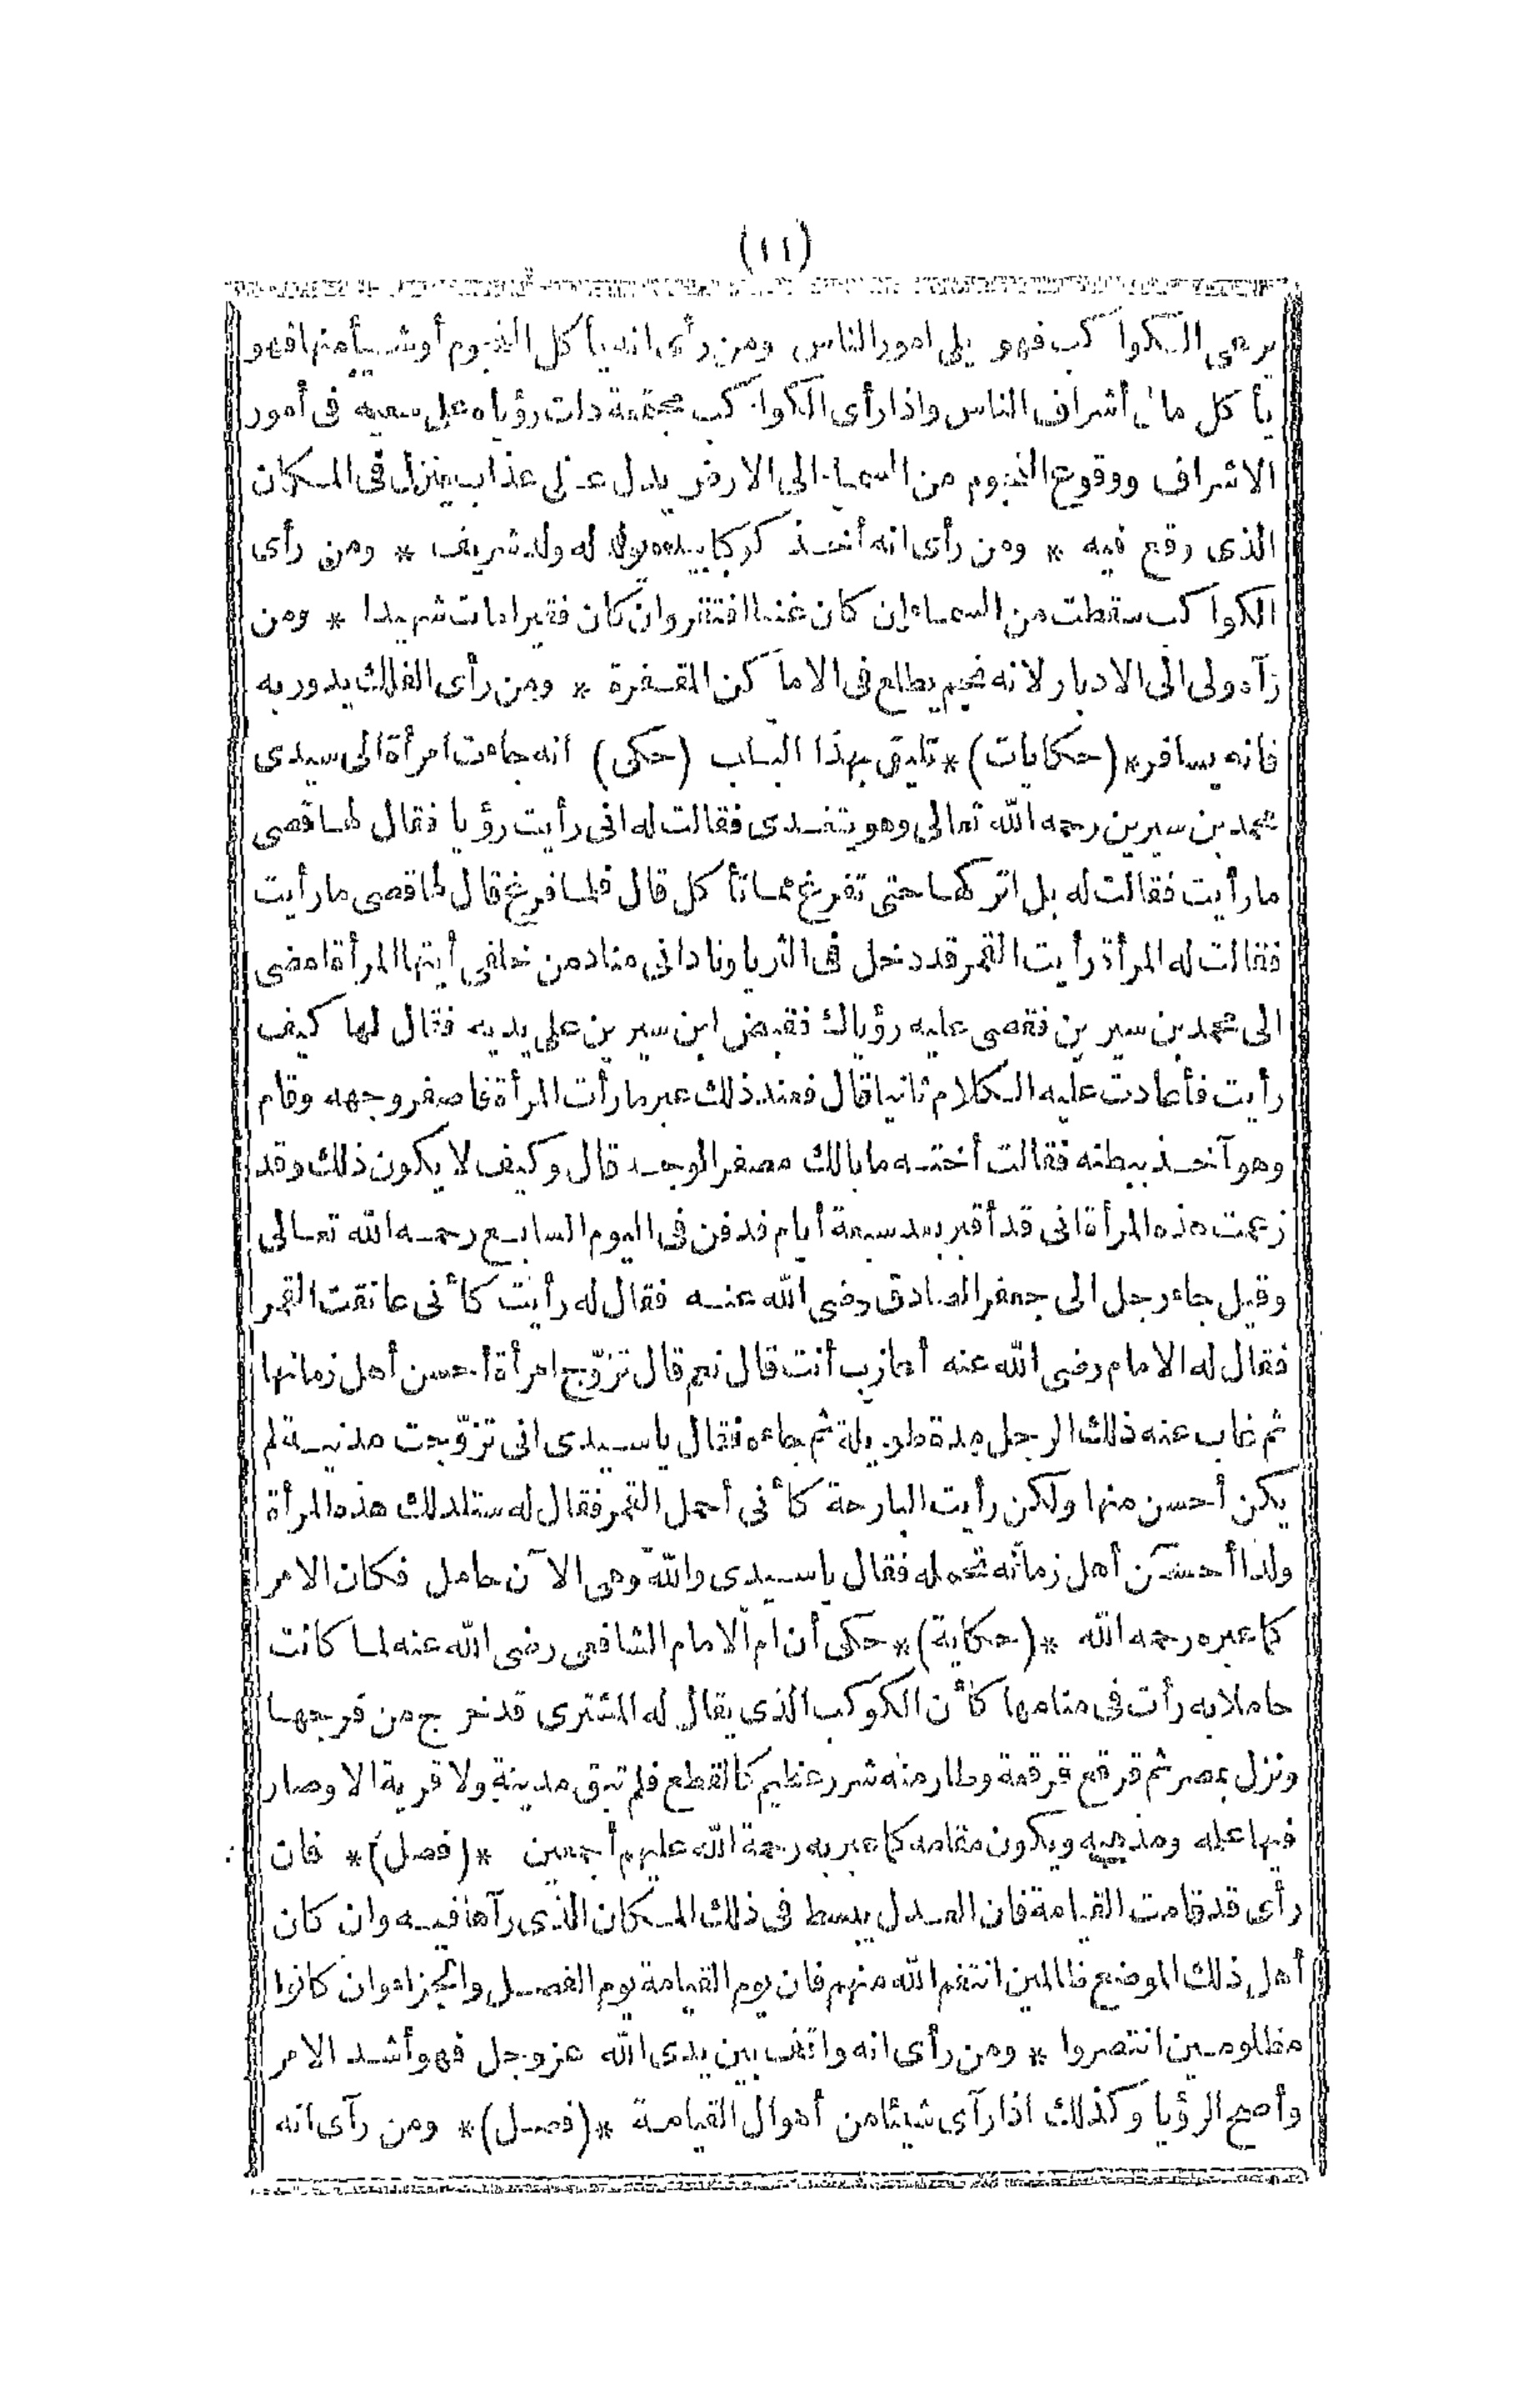 (١١)
يرعى الكواكب فهو يلى امور الناس ومن رأى انه يأكل النجوم أو شيأ منها فهو
يأكل مال أشراف الناس واذا رأى الكواكب مجتمعة دلت رؤياه على سعيه فى أمور
الاشراف ووقوع النجوم من السماء الى الارض يدل على عذاب ينزل فى المكان
الذى وقع فيه * ومن رأى انه أخذ كوكبا بيده يولد له ولد شريف * ومن رأى
الكواكب سقطت من السماء إن كان غنيا افتقر وان كان فقيرا مات شهيدا * ومن
رآه ولى الى الادبار لانه نجم يطلع فى الاماكن المقفرة * ومن رأى الفلك يدور به
فانه يسافر *(حكايات)* تليق بهذا الباب (حكى) انه جاءت امرأة الى سيدى
محمد بن سيرين رحمه الله تعالى وهو يتغدى فقالت له انى رأيت رؤيا فقال لها قصى
ما رأيت فقالت له بل اتركها حتى تفرغ مما تأكل قال فلما فرغ قال لها قصى ما رأيت
فقالت له المرأة رأيت القمر قد دخل فى الثريا ونادانى مناد من خلفى أيتها المرأة امضى
الى محمد بن سيرين فقصى عليه رؤياك فقبض ابن سيرين على يديه فقال لها كيف
رأيت فأعادت عليه الكلام ثانيا قال فعند ذلك عبر ما رأت المرأة فاصفر وجهه وقام
وهو آخذ ببطنه فقالت أخته ما بالك مصفر الوجه قال وكيف لا يكون ذلك وقد
زعمت هذه المرأة انى قد أقبر بعد سبعة أيام فدفن فى اليوم السابع رحمه الله تعالى
وقيل جاء رجل الى جعفر الصادق رضى الله عنه فقال له رأيت كأنى عانقت القمر
فقال له الامام رضى الله عنه أعازب أنت قال نعم قال تزوّج امرأة أحسن أهل زمانها
ثم غاب عنه ذلك الرجل مدة طويلة ثم جاءه فقال يا سيدى انى تزوّجت مدنية لم
يكن أحسن منها ولكن رأيت البارحة كأنى أحمل القمر فقال له ستلد لك هذه المرأة
ولدا أحسن أهل زمانه تحمله فقال يا سيدى والله وهى الآن حامل فكان الامر
كما عبره رحمه الله *(حكاية)* حكى أن أم الامام الشافعى رضى الله عنه لما كانت
حاملا به رأت فى منامها كأن الكوكب الذى يقال له المشترى قد خرج من فرجها
ونزل بمصر ثم قرقع قرقعة وطار منه شرر عظيم كالقطع فلم تبق مدينة ولا قرية الا وصار
فيها علمه ومذهبه ويكون مقامه كما عبر به رحمة الله عليهم أجمعين *(فصل)* فان
رأى قد قامت القيامة فان العدل يبسط فى ذلك المكان الذى رآها فيه وان كان
أهل ذلك الموضع ظالمين انتقم الله منهم فان يوم القيامة يوم الفصل والجزاء وان كانوا
مظلومين انتصروا * ومن رأى انه واقف بين يدى الله عز وجل فهو أشد الامر
وأصح الرؤيا وكذلك اذا رآى شيئا من أهوال القيامة *(فصل)* ومن رآى انه